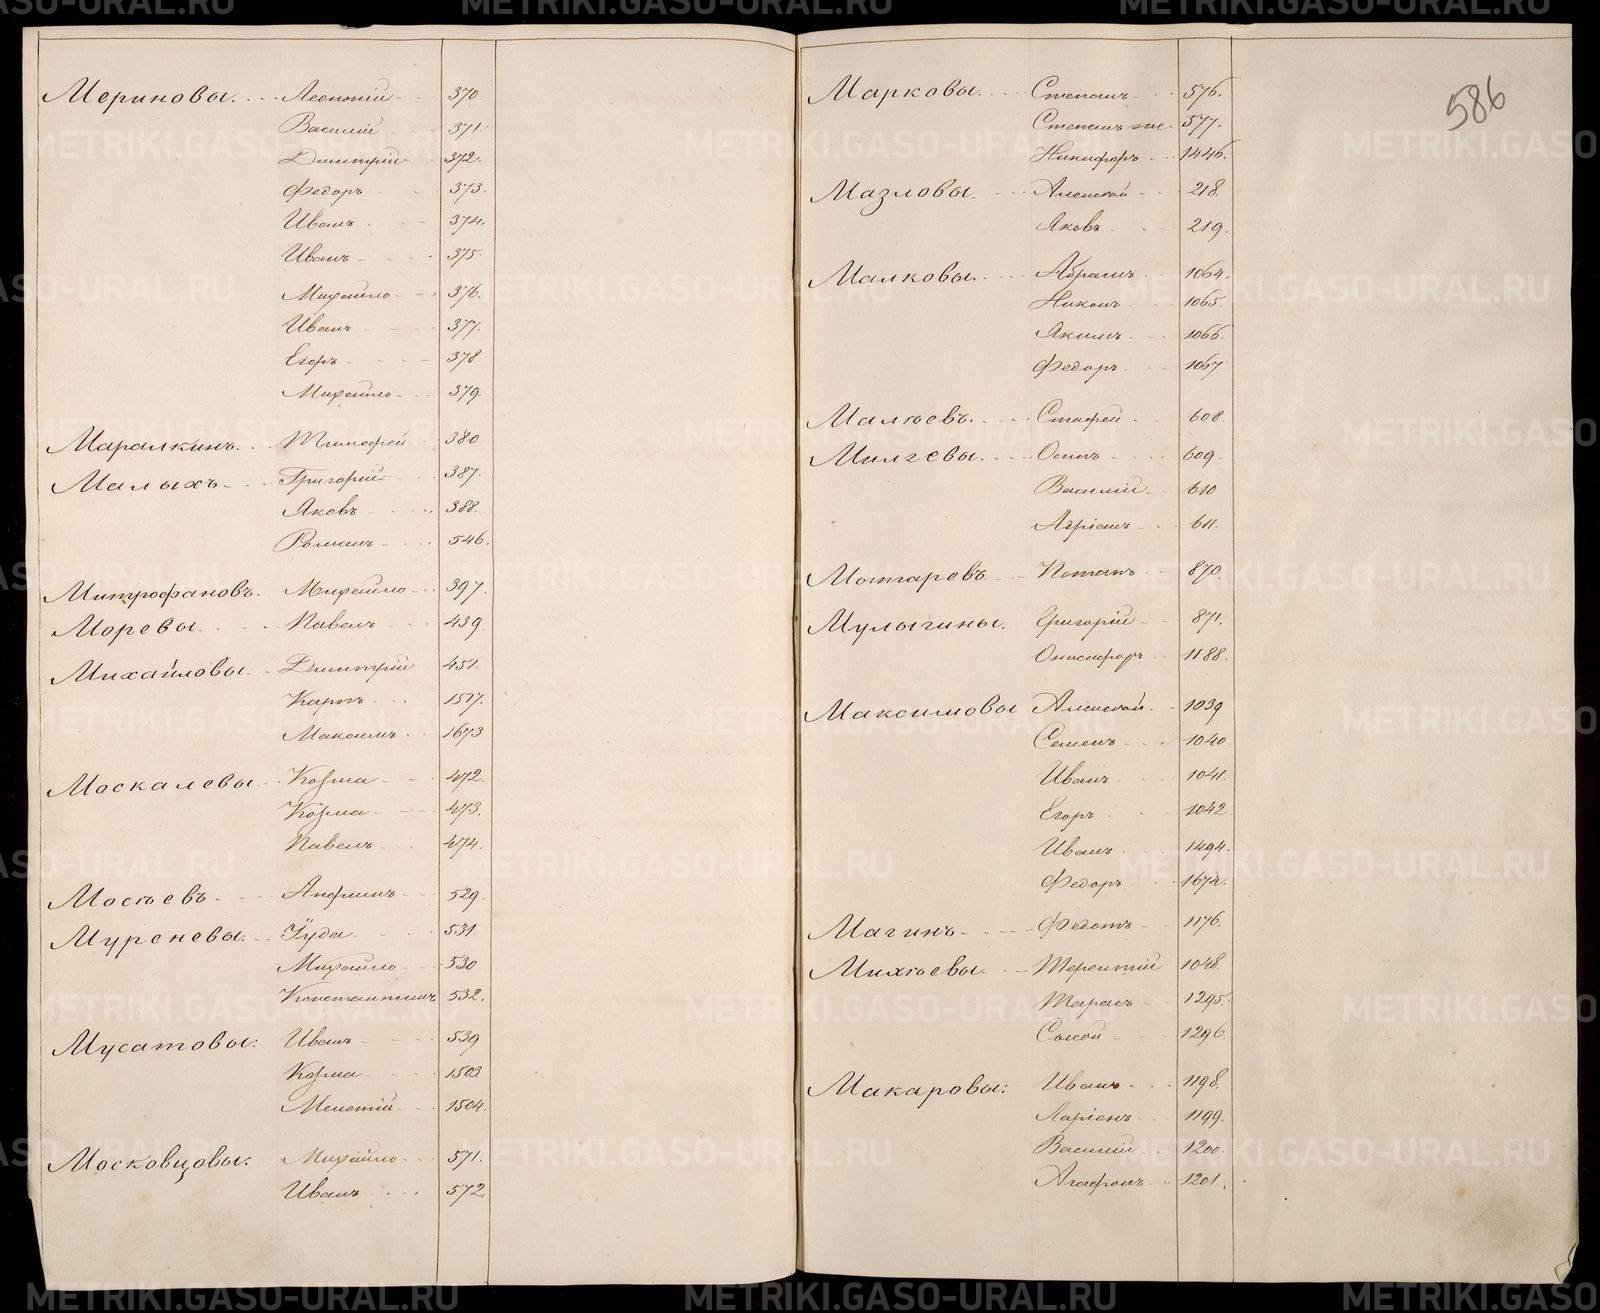 Мериновы. Леонтій 370
Василій 371
Дмитрій 372.
Федоръ 373
Иванъ 374.
Иванъ 375
Михайло 376.
Иванъ 377.
Егоръ 378
Михайло 379
Маралкинъ. Тимофей 380
Малыхъ Григорій 387.
Яковъ 388.
Романъ 546.
Митрофановъ. Михайло 397.
Моревы Павелъ 439
Михайловы Дмитрій 451
Карпъ 1517.
Максимъ 1673
Москалевы Козма 472.
Козма 473.
Павелъ 474.
Мосѣевъ Анфимъ 529.
Муреневы Іуда 531
Михайло 530
Константинъ 532.
Мусатовы: Иванъ 539
Козма 1503
Мелетій 1504.
Московцовы: Михайло 571.
Иванъ 572
586
Марковы. Степанъ 576.
Степанъ же 577.
Никифоръ 1446.
Мазловы. Алексѣй 218.
Яковъ 219.
Малковы Абрамъ 1064.
Никонъ 1065.
Якимъ 1066.
Федоръ 1067
Малѣевъ. Стафей 608
Милгевы. Осипъ 609.
Василій 610
Адріанъ 611.
Мошаревъ Потапъ 870.
Мулыгины. Григорій 871.
Онисифоръ 1188.
Максимовы Алексѣй 1039
Семенъ 1040
Иванъ 1041.
Егоръ 1042
Иванъ 1494.
Федоръ 1674.
Магинъ Федотъ 1176.
Михѣевы. Терентій 1048.
Тарасъ 1295.
Сысой 1296.
Макаровы: Иванъ 1198.
Ларіонъ 1199.
Василій 1200.
Агафонъ 1201.
METRIKI.GASO-URAL.RU